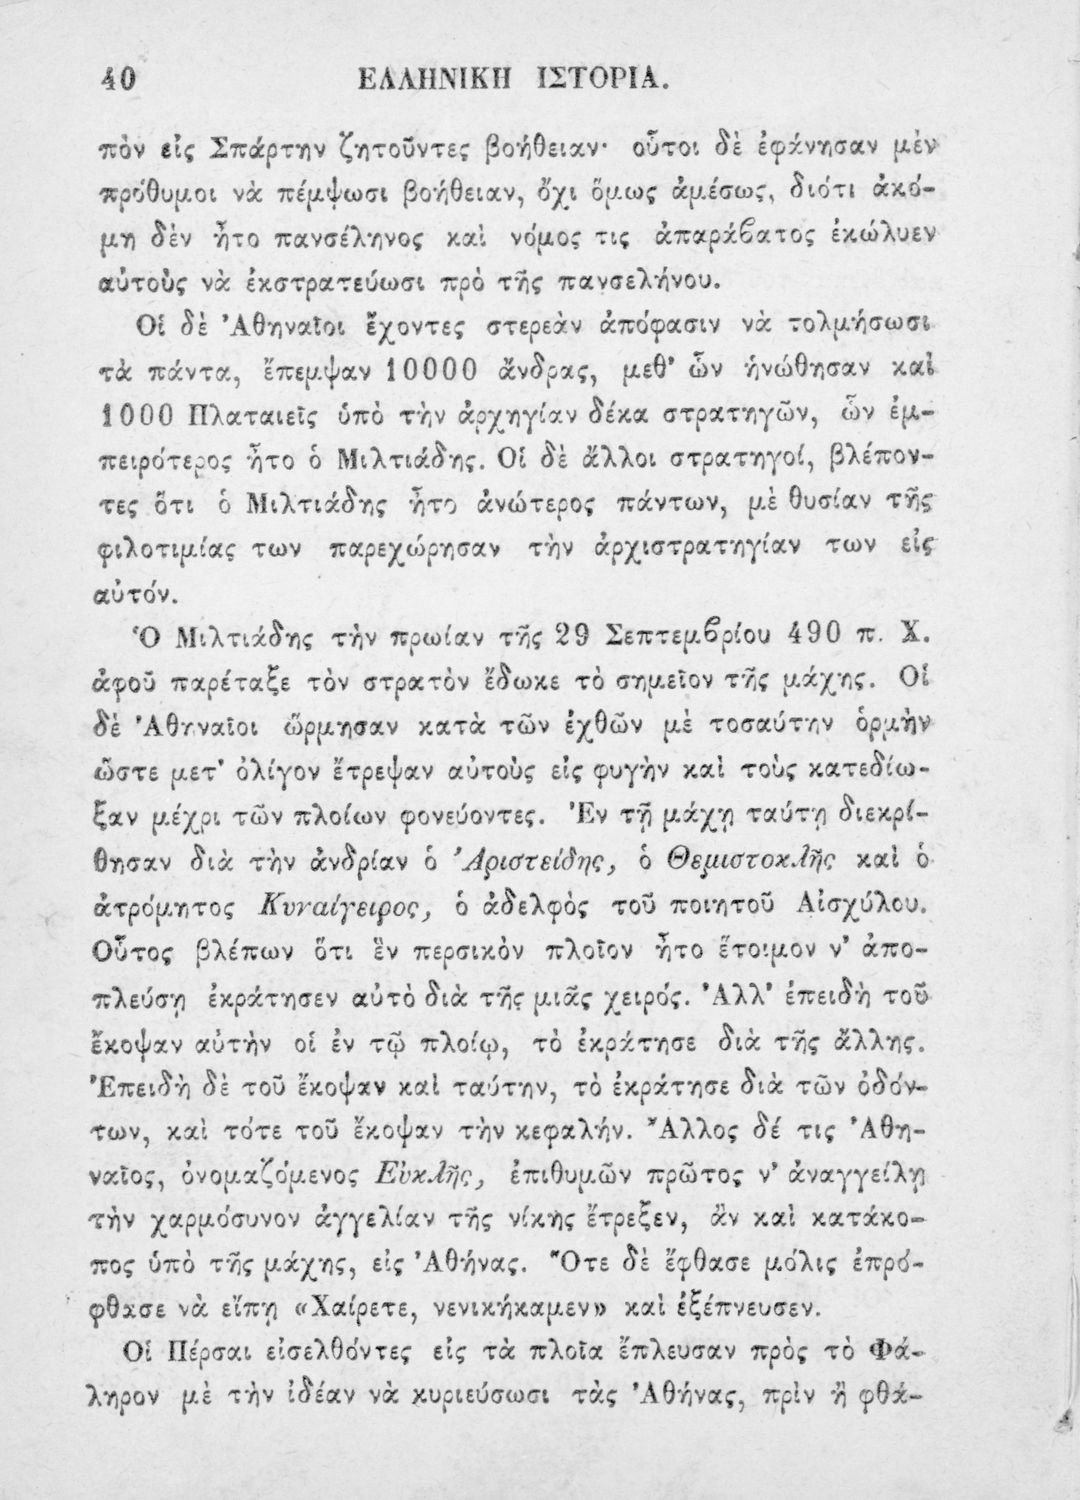 40 ΕΛΛΗΝΙΚΗ ΙΣΤΟΡΙΑ.
πὸν εἰς Σπάρτην ζητοῦντες βοήθειαν· οὗτοι δὲ ἐφάνησαν μὲν
πρόθυμοι νὰ πέμψωσι βοήθειαν, ὄχι ὅμως ἀμέσως, διότι ἀκό-
μη δὲν ἦτο πανσέληνος καὶ νόμος τις ἀπαράϐατος ἐκώλυεν
αὐτοὺς νὰ ἐκστρατεύωσι πρὸ τῆς πανσελήνου.
Οἱ δὲ Ἀθηναῖοι ἔχοντες στερεὰν ἀπόφασιν νὰ τολμήσωσι
τὰ πάντα, ἔπεμψαν 10000 ἄνδρας, μεθ' ὧν ἡνώθησαν καὶ
1000 Πλαταιεῖς ὑπὸ τὴν ἀρχηγίαν δέκα στρατηγῶν, ὧν ἐμ-
πειρότερος ἦτο ὁ Μιλτιάδης. Οἱ δὲ ἄλλοι στρατηγοί, βλέπον-
τες ὅτι ὁ Μιλτιάδης ἦτο ἀνώτερος πάντων, μὲ θυσίαν τῆς
φιλοτιμίας των παρεχώρησαν τὴν ἀρχιστρατηγίαν των εἰς
αὐτόν.
Ὁ Μιλτιάδης τὴν πρωίαν τῆς 29 Σεπτεμϐρίου 490 π. Χ.
ἀφοῦ παρέταξε τὸν στρατὸν ἔδωκε τὸ σημεῖον τῆς μάχης. Οἱ
δὲ Ἀθηναῖοι ὥρμησαν κατὰ τῶν ἐχθῶν μὲ τοσαύτην ὁρμὴν
ὥστε μετ' ὀλίγον ἔτρεψαν αὐτοὺς εἰς φυγὴν καὶ τοὺς κατεδίω-
ξαν μέχρι τῶν πλοίων φονεύοντες. Ἐν τῇ μάχῃ ταύτῃ διεκρί-
θησαν διὰ τὴν ἀνδρίαν ὁ Ἀριστείδης, ὁ Θεμιστοκλῆς καὶ ὁ
ἀτρόμητος Κυναίγειρος, ὁ ἀδελφὸς τοῦ ποιητοῦ Αἰσχύλου.
Οὗτος βλέπων ὅτι ἓν περσικὸν πλοῖον ἦτο ἕτοιμον ν' ἀπο-
πλεύσῃ ἐκράτησεν αὐτὸ διὰ τῆς μιᾶς χειρός. Ἀλλ' ἐπειδὴ τοῦ
ἔκοψαν αὐτὴν οἱ ἐν τῷ πλοίῳ, τὸ ἐκράτησε διὰ τῆς ἄλλης.
Ἐπειδὴ δὲ τοῦ ἔκοψαν καὶ ταύτην, τὸ ἐκράτησε διὰ τῶν ὀδόν-
των, καὶ τότε τοῦ ἔκοψαν τὴν κεφαλήν. Ἄλλος δέ τις Ἀθη-
ναῖος, ὀνομαζόμενος Εὐκλῆς, ἐπιθυμῶν πρῶτος ν' ἀναγγείλῃ
τὴν χαρμόσυνον ἀγγελίαν τῆς νίκης ἔτρεξεν, ἂν καὶ κατάκο-
πος ὑπὸ τῆς μάχης, εἰς Ἀθήνας. Ὅτε δὲ ἔφθασε μόλις ἐπρό-
φθασε νὰ εἴπῃ «Χαίρετε, νενικήκαμεν» καὶ ἐξέπνευσεν.
Οἱ Πέρσαι εἰσελθόντες εἰς τὰ πλοῖα ἔπλευσαν πρὸς τὸ Φά-
ληρον μὲ τὴν ἰδέαν νὰ κυριεύσωσι τὰς Ἀθήνας, πρὶν ἢ φθά-